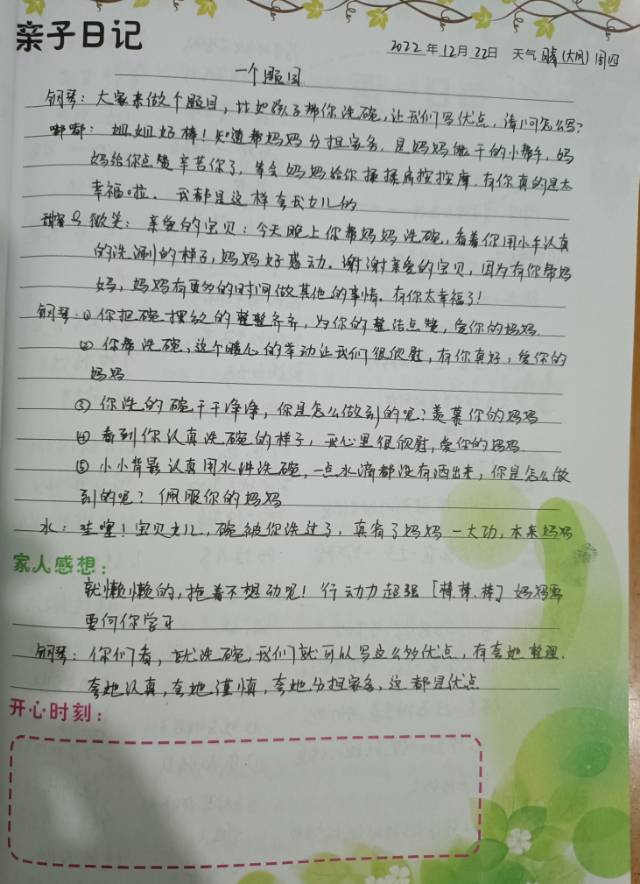 亲子日记
2022年12月22日 天气 晴(大风) 周四
一个题目
钢琴：大家来做个题目，比如孩子帮你洗碗，让我们写优点，请问怎么写？
嘟嘟：姐姐好棒！知道帮妈妈分担家务，是妈妈能干的小帮手，妈
妈给你点赞辛苦你了，等会妈妈给你揉揉肩按按摩，有你真的是太
幸福啦。我都是这样夸我女儿的
微笑：亲爱的宝贝：今天晚上你帮妈妈洗碗，看着你用小手认真
的洗涮的样子，妈妈好感动。谢谢亲爱的宝贝，因为有你帮妈
妈，妈妈有更多的时间做其他的事情。有你太幸福了！
钢琴：①你把碗摆放的整整齐齐，为你的整洁点赞，爱你的妈妈.
②你帮洗碗，这个暖心的举动让我们很欣慰，有你真好，爱你的
妈妈
③你洗的碗干干净净，你是怎么做到的呢？羡慕你的妈妈
④看到你认真洗碗的样子，我心里很欣慰，爱你的妈妈.
⑤小小背影认真用水冲洗碗，一点水滴都没有洒出来，你是怎么做
到的呢？佩服你的妈妈
水：哇噻！宝贝女儿，碗被你洗过了，真省了妈妈一大功，本来妈妈
家人感想：
就懒懒的，拖着不想动呢！行动力超强[棒棒、棒]妈妈要
要向你学习
钢琴：你们看，就洗碗，我们就可以写这么多优点，有夸她整理.
夸她认真，夸她谨慎，夸她分担家务，这都是优点
开心时刻：